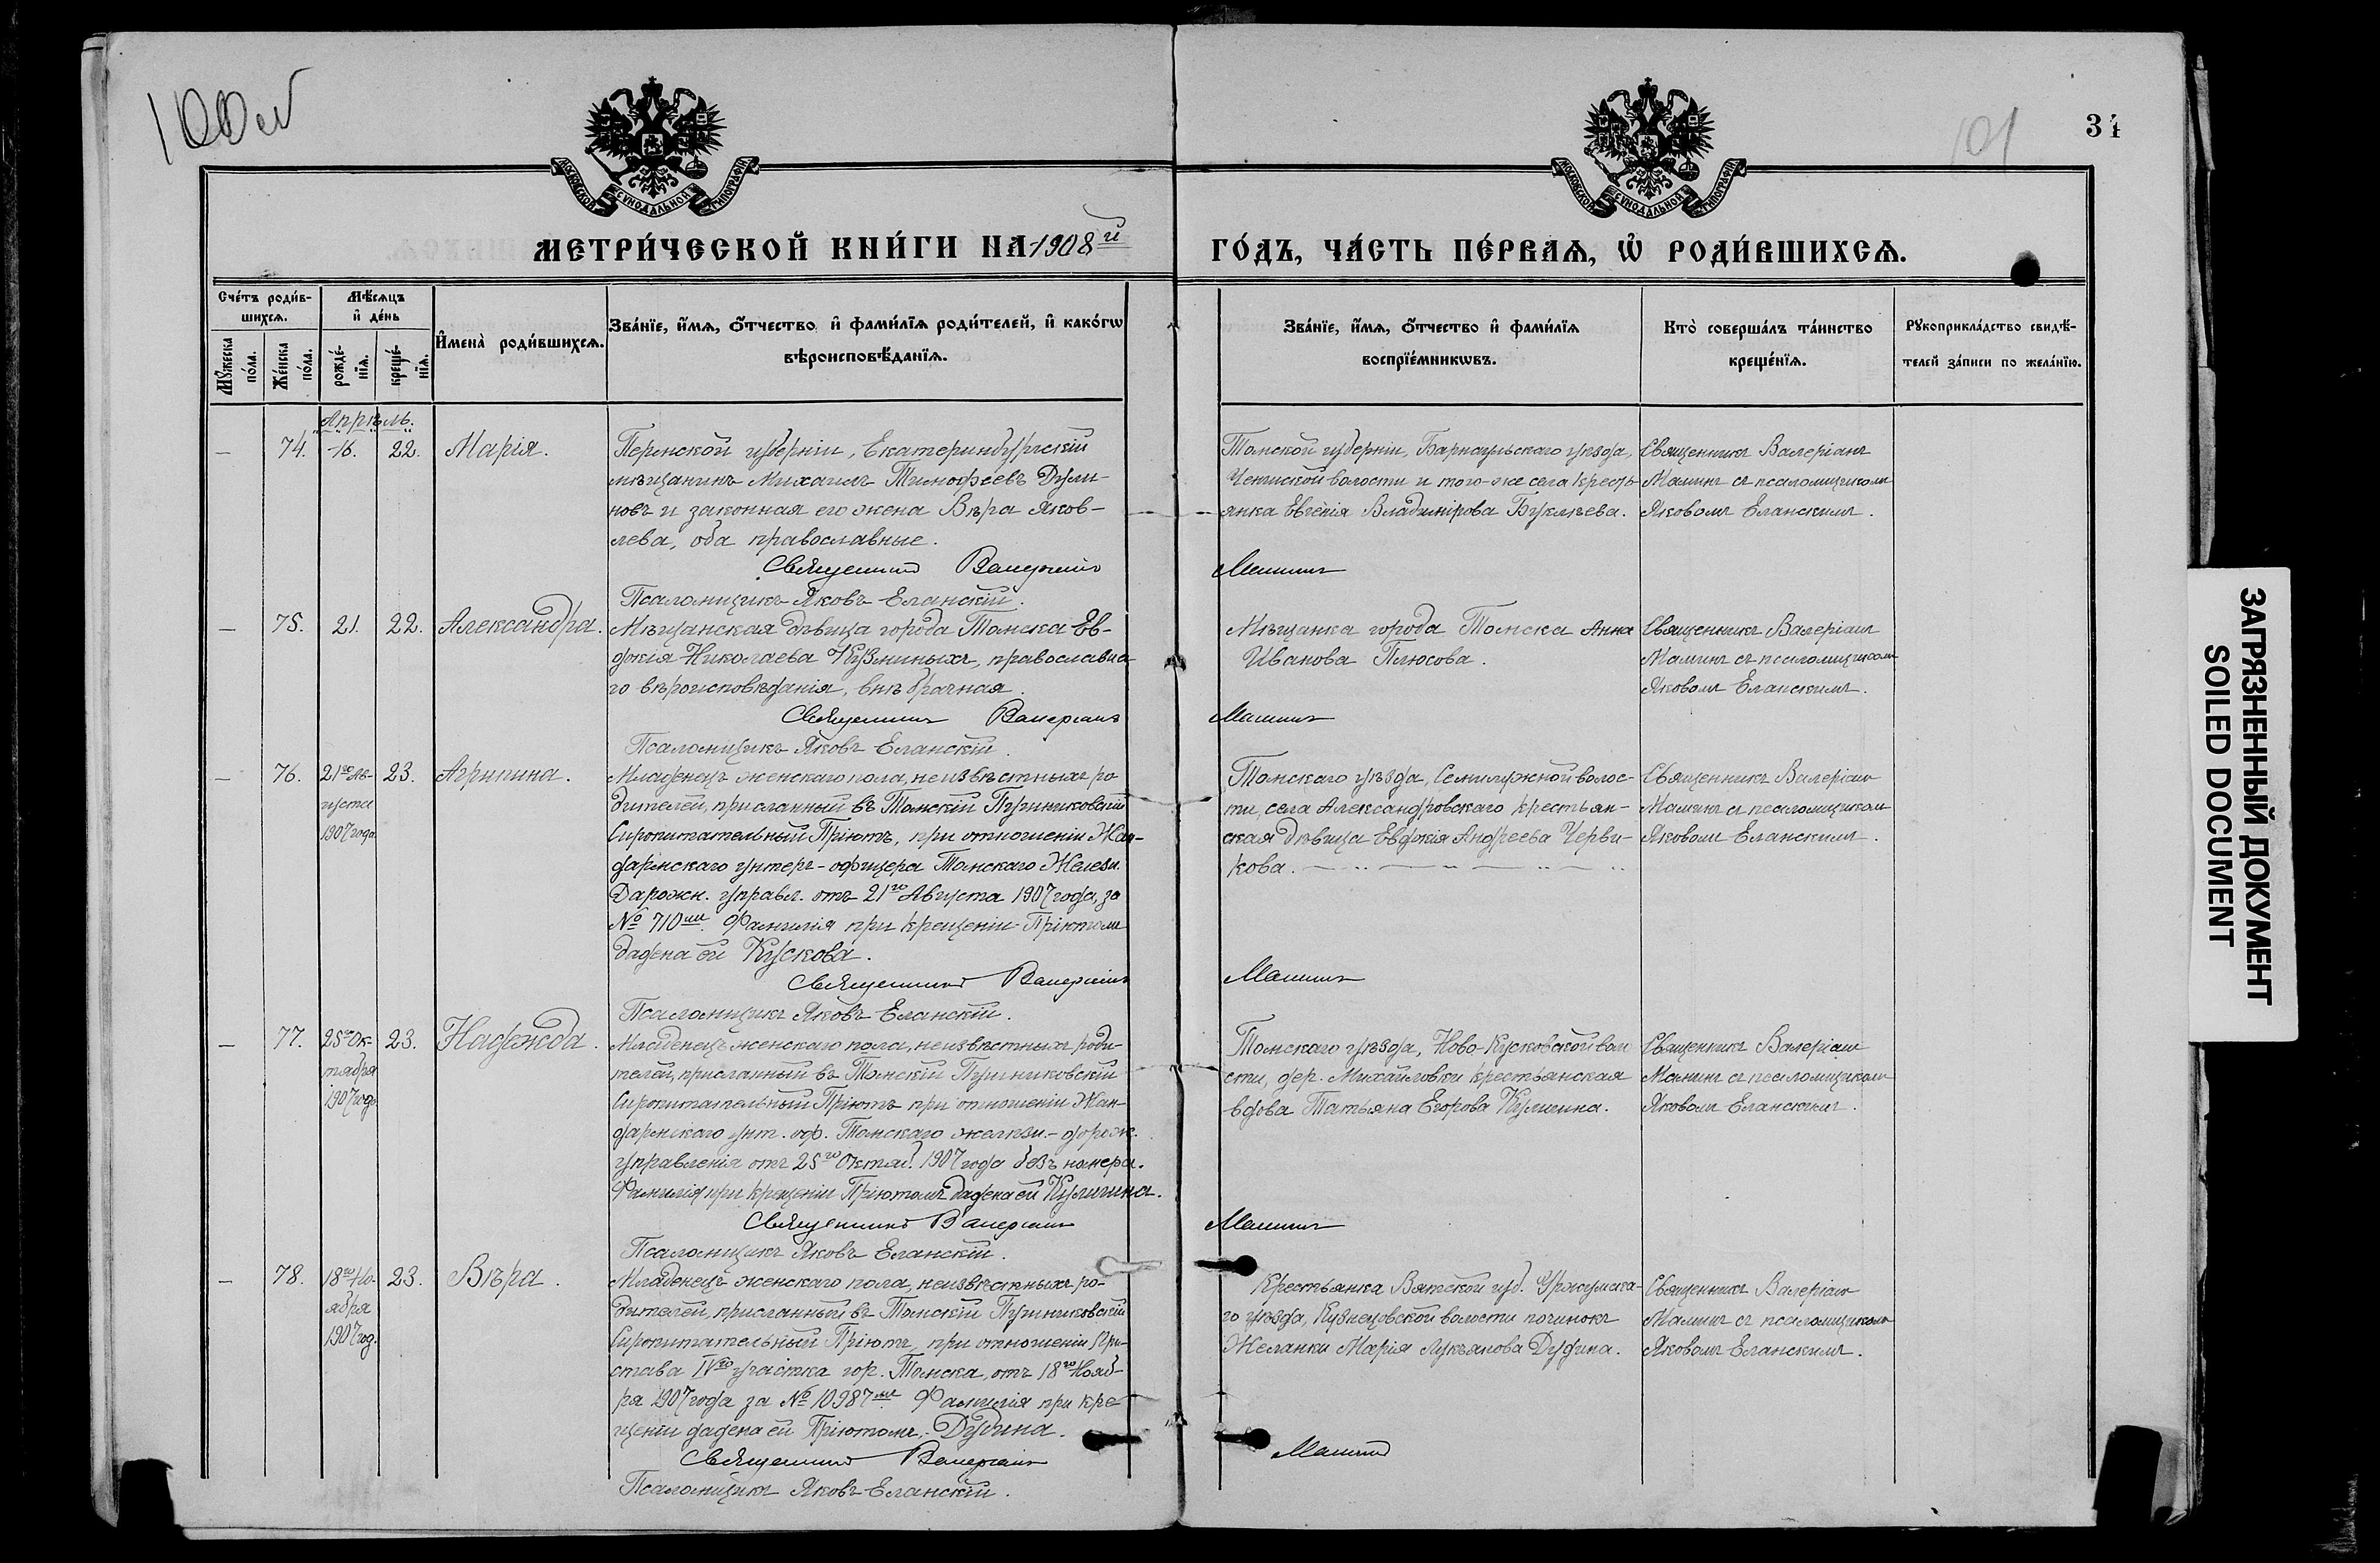 100 об
101
34
МОСКОВСКОЙ СѴНОДАЛЬНОЙ ТИПОГРАФІИ
МОСКОВСКОЙ СѴНОДАЛЬНОЙ ТИПОГРАФІИ
МЕТРИ́ЧЕСКОЙ КНИ́ГИ НА 1908й
ГО́ДЪ, ЧА́СТЬ ПЕ́РВАѦ, Ѡ҆ РОДИ́ВШИХСѦ.
Сче́тъ роди́в-
шихсѧ.
Мꙋ́жеска по́ла.
Же́нска по́ла.
Мѣ́сѧцъ
и҆ де́нь
рожде́-
нїѧ.
креще́-
нїѧ.
И҆мена̀ роди́вшихсѧ.
Зва́нїе, и҆́мѧ, ѻ҆́тчество и҆ фами́лїѧ роди́телей, и҆ како́гѡ
вѣроисповѣ́данїѧ.
Зва́нїе, и҆́мѧ, ѻ҆́тчество и҆ фами́лїѧ
воспрїе́мникѡвъ.
Кто̀ соверша́лъ та́инство
креще́нїѧ.
Рꙋкоприкла́дство свидѣ́-
телей за́писи по жела́нїю.
Апрѣль.
—
74.
16.
22.
Марія.
Пермской губерніи, Екатеринбургскій
мѣщанинъ Михаилъ Тимофеевъ Дули-
новъ и законная его жена Вѣра Яков-
лева, оба православные.
Священникъ Валеріанъ
Псаломщикъ Яковъ Еланскій.
Томской губерніи, Барнаульскаго уѣзда,
Чингиской волости и того-же села кресть-
янка Евгенія Владимірова Буклѣева.
Маминъ
Священникъ Валеріанъ
Маминъ съ псаломщикомъ
Яковомъ Еланскимъ.
—
75.
21.
22.
Александра.
Мѣщанская дѣвица города Томска Ев-
докія Николаева Кузминыхъ, православна-
го вѣроисповѣданія, внѣбрачная.
Священникъ Валеріанъ
Псаломщикъ Яковъ Еланскій.
Мѣщанка города Томска Анна
Иванова Плюсова.
Маминъ
Священникъ Валеріанъ
Маминъ съ псаломщикомъ
Яковомъ Еланскимъ.
—
76.
21го Ав-
густа
1907 года
23.
Агрипина.
Младенецъ женскаго пола, неизвѣстныхъ ро-
дителей, присланный въ Томскій Пушниковскій
Сиропитательный Пріютъ, при отношеніи Жан-
дармскаго унтеръ-офицера Томскаго Желѣзн.
Дорожн. управл. отъ 21го Августа 1907 года, за
№ 710мъ. Фамилія при крещеніи Пріютомъ
дадена ей Кускова.
Священникъ Валеріанъ
Псаломщикъ Яковъ Еланскій.
Томскаго уѣзда, Семилужной волос-
ти, села Александровскаго крестьян-
ская дѣвица Евдокія Андреева Черви-
кова.
Маминъ
Священникъ Валеріанъ
Маминъ съ псаломщикомъ
Яковомъ Еланскимъ.
—
77.
25го Ок-
тября
1907 года
23.
Надежда.
Младенецъ женскаго пола, неизвѣстныхъ роди-
телей, присланный въ Томскій Пушниковскій
Сиропитательный Пріютъ при отношеніи Жан-
дармскаго унт. оф. Томскаго желѣзн.-дорож.
управленія отъ 25го Октяб. 1907 года безъ номера.
Фамилія при крещеніи Пріютомъ дадена ей Кулигина.
Священникъ Валеріанъ
Псаломщикъ Яковъ Еланскій.
Томскаго уѣзда, Ново-Кусковской воло-
сти, дер. Михайловки крестьянская
вдова Татьяна Егорова Кулигина.
Маминъ
Священникъ Валеріанъ
Маминъ съ псаломщикомъ
Яковомъ Еланскимъ.
—
78.
18го Но-
ября
1907 год.
23.
Вѣра.
Младенецъ женскаго пола, неизвѣстныхъ ро-
дителей, присланный въ Томскій Пушниковскій
Сиропитательный Пріютъ, при отношеніи При-
става IVго участка гор. Томска, отъ 18го Нояб-
ря 1907 года за № 10987мъ. Фамилія при кре-
щеніи дадена ей Пріютомъ, - Дудина.
Священникъ Валеріанъ
Псаломщикъ Яковъ Еланскій.
Крестьянка Вятской губ. Уржумска-
го уѣзда, Кузнецовской волости починокъ
Желанки Марія Лукьянова Дудина.
Маминъ
Священникъ Валеріанъ
Маминъ съ псаломщикомъ
Яковомъ Еланскимъ.
ЗАГРЯЗНЕННЫЙ ДОКУМЕНТ
SOILED DOCUMENT